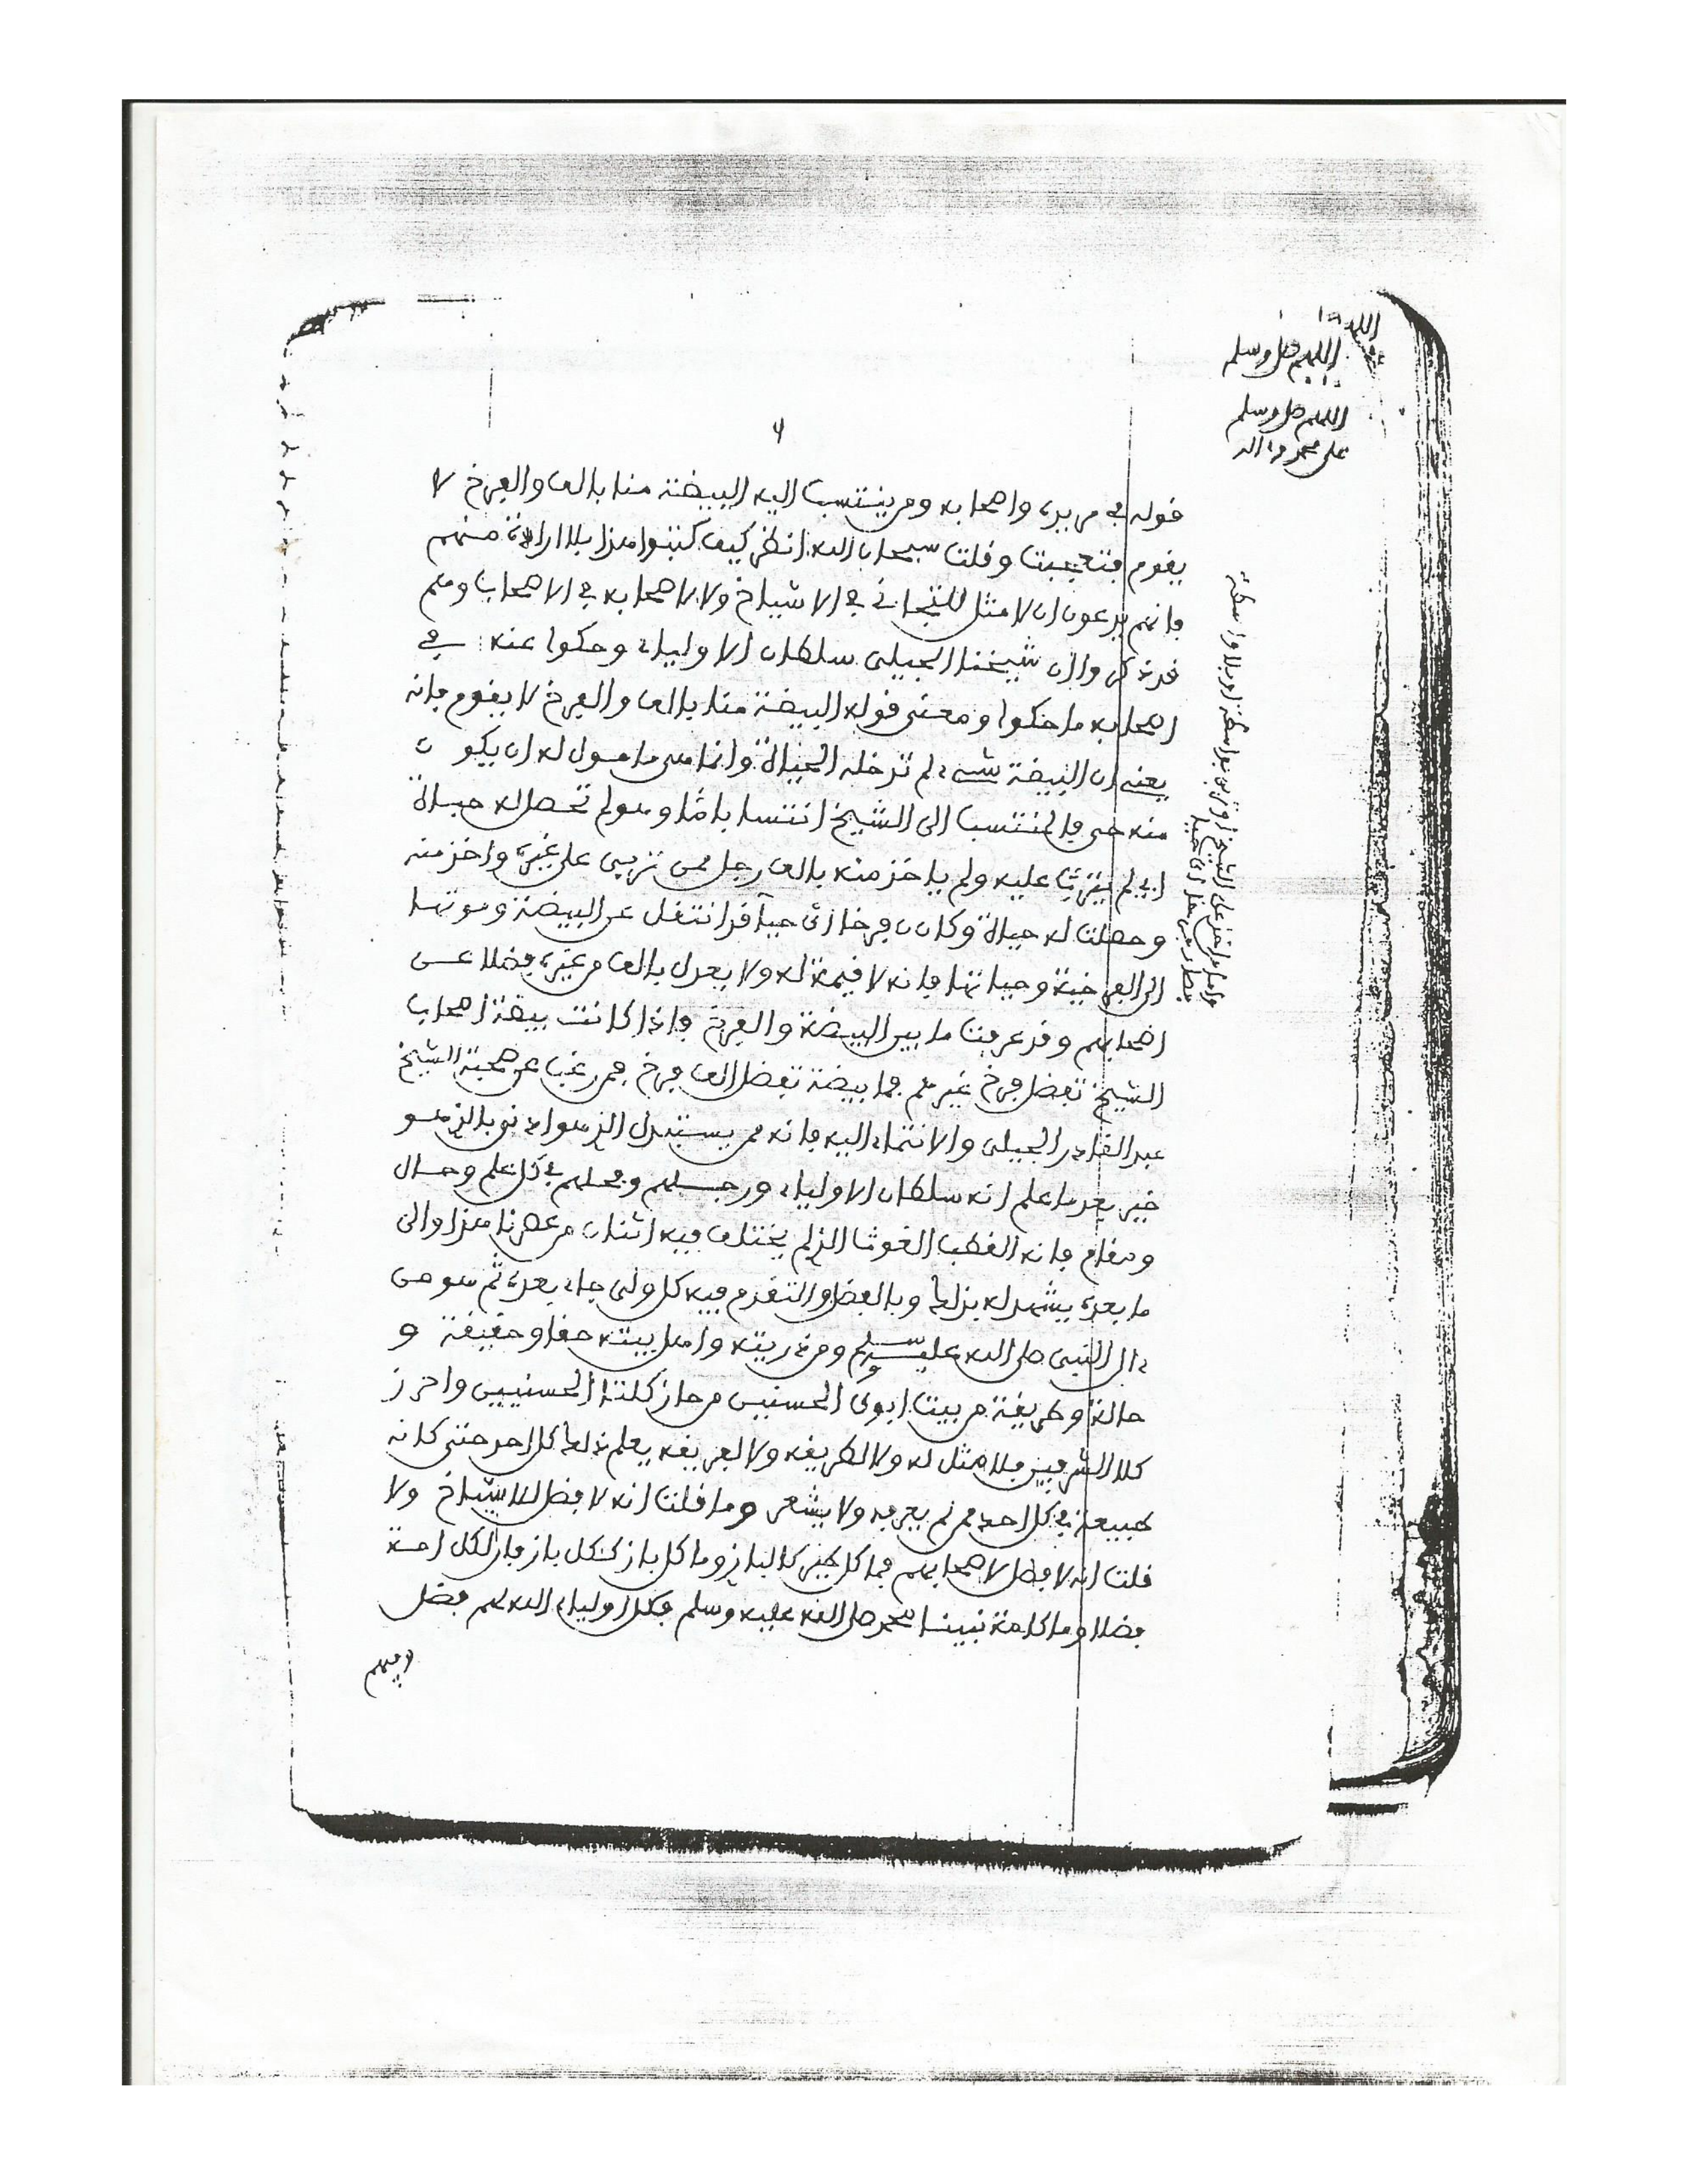 اللهم صل وسلم
اللهم صل وسلم
على محمد وآله
قوله في مريده واصحابه ومن ينتسب اليه البيضة منا بالف والفرخ لا
يقوم فتعجبت وقلت سبحان الله انظر كيف كتبوا هذا بلا ارادة منهم
فانهم يدعون ان لا مثل للتجاني في الاشياخ ولا لاصحابه في الاصحاب وهم
قد ذكروا ان شيخنا الجيلي سلطان الاولياء وحكوا عنه في
اصحابه ما حكوا ومعنى قوله البيضة منا بالف والفرخ لا يقوم فانه
يعني ان البيضة شيء لم تدخله الحياة وانما هي مامول له ان يكون
منه حي فالمنتسب الى الشيخ انتسابا ما ولم تحصل له حياة
اي لم يترب عليه ولم ياخذ منه بالف رجل ممن تربى على غيره واخذ منه
وحصلت له حياة وكان فرخا اي حيا قد انتقل عن البيضة وموتها
الى الفرخية وحياتها فانه لا قيمة له ولا يعدل بالف من غيره فضلا عن
اصحابهم وقد عرفت ما بين البيضة والفرخ واذا كانت بيضة اصحاب
الشيخ تفضل فرخ غيرهم فما بيضة تفضل الف فرخ فمن رغب عن صحبة الشيخ
عبد القادر الجيلي والانتماء اليه فانه ممن يستبدل الذي هو ادنى بالذي هو
خير بعد ما علم انه سلطان الاولياء ورئيسهم وفحلهم في كل علم وحال
ومقام فانه القطب الغوث الذي لم يختلف فيه اثنان من عصرنا هذا والى
ما بعده يشهد له بذلك وبالفضل والتقدم فيه كل ولي جاء بعده ثم هو من
ءال النبي صلى الله عليه وسلم ومن ذريته واهل بيته حقا وحقيقة و
حالة وطريقة من بيت ابوي الحسنين من حاز كلتا الحسنيين واحرز
كلا الشرفين فلا مثل له ولا لطريقه ولا لفريقه يعلم ذلك كل احد حتى كانه
طبيعة في كل احد ممن لم يعرفه ولا يشعر وما قلت انه لا فضل للاشياخ ولا
قلت انه لا فضل لاصحابهم فما كل طير كالباز وما كل باز ككل باز فان لكل امة
فضلا وما كامة نبينا محمد صلى الله عليه وسلم فكل اولياء الله لهم فضل
وفيهم